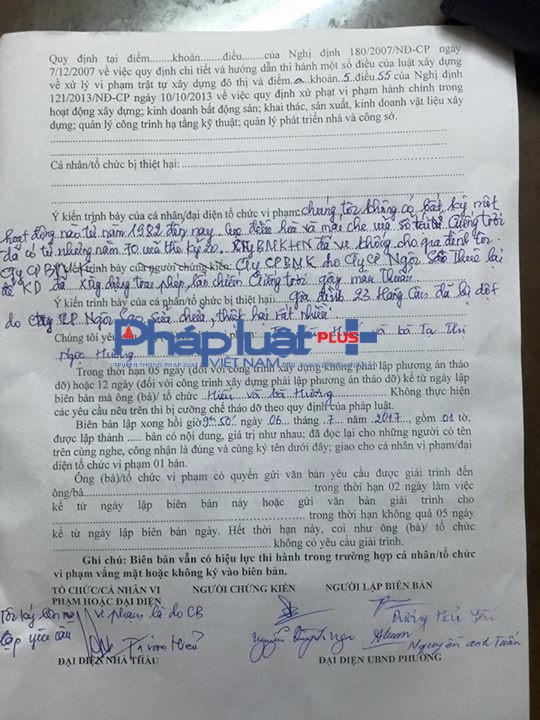 Quy định tại điểm........khoản........điều.......của Nghị định 180/2007/NĐ-CP ngày
7/12/2007 về việc quy định chi tiết và hướng dẫn thi hành một số điều của luật xây dựng
về xử lý vi phạm trật tự xây dựng đô thị và điểm.a..khoản.5..điều.55.của Nghị định
121/2013/NĐ-CP ngày 10/10/2013 về việc quy định xử phạt vi phạm hành chính trong
hoạt động xây dựng; kinh doanh bất động sản; khai thác, sản xuất, kinh doanh vật liệu xây
dựng; quản lý công trình hạ tầng kỹ thuật; quản lý phát triển nhà và công sở.
Cá nhân/tổ chức bị thiệt hại:
Ý kiến trình bày của cá nhân/đại diện tổ chức vi phạm: chúng tôi không có bất kỳ một
hoạt động nào từ năm 1982 đến nay điều hòa và mái che
đã có từ những năm 70 của thế kỷ 20. đã về không cho gia đình tôi
Ý kiến trình bày của người chứng kiến: Cty CPBMK cho Cty CP Ngôi Sao Thuê lại
để KD đã xây dựng trái phép lấn chiếm gây mâu thuẫn
Ý kiến trình bày của cá nhân/tổ chức bị thiệt hại: gia đình 23 Hàng là dột
do Cty CP Ngôi Sao sửa chữa, thiệt hại rất nhiều
Chúng tôi yêu và bà Tạ Thị
Ngọc Hương
Phápluật PLUS
VIỆT NAM
Trong thời hạn 05 ngày (đối với công trình xây dựng không phải lập phương án tháo
dỡ) hoặc 12 ngày (đối với công trình xây dựng phải lập phương án tháo dỡ) kể từ ngày lập
biên bản mà ông (bà)/ tổ chức Hiếu và bà Hương Không thực hiện
các yêu cầu nêu trên thì bị cưỡng chế tháo dỡ theo quy định của pháp luật.
Biên bản lập xong hồi giờ 9h50' ngày 06 tháng 7 năm 2017, gồm 01 tờ,
được lập thành ..... bản có nội dung, giá trị như nhau; đã đọc lại cho những người có tên
trên cùng nghe, công nhận là đúng và cùng ký tên dưới đây; giao cho cá nhân vi phạm/đại
diện tổ chức vi phạm 01 bản.
Ông (bà)/tổ chức vi phạm có quyền gửi văn bản yêu cầu được giải trình đến
ông/bà.......... trong thời hạn 02 ngày làm việc
kể từ ngày lập biên bản này hoặc gửi văn bản giải trình cho
.......... trong thời hạn không quá 05 ngày
kể từ ngày lập biên bản ngày. Hết thời hạn này, coi như ông (bà)/ tổ chức
.......... không có yêu cầu giải trình.
Ghi chú: Biên bản vẫn có hiệu lực thi hành trong trường hợp cá nhân/tổ chức
vi phạm vắng mặt hoặc không ký vào biên bản.
TỔ CHỨC/CÁ NHÂN VI PHẠM HOẶC ĐẠI DIỆN
NGƯỜI CHỨNG KIẾN
NGƯỜI LẬP BIÊN BẢN
vi phạm là do CB
lập yêu cầu
Nguyễn Anh Tuấn
ĐẠI DIỆN NHÀ THẦU
ĐẠI DIỆN UBND PHƯỜNG